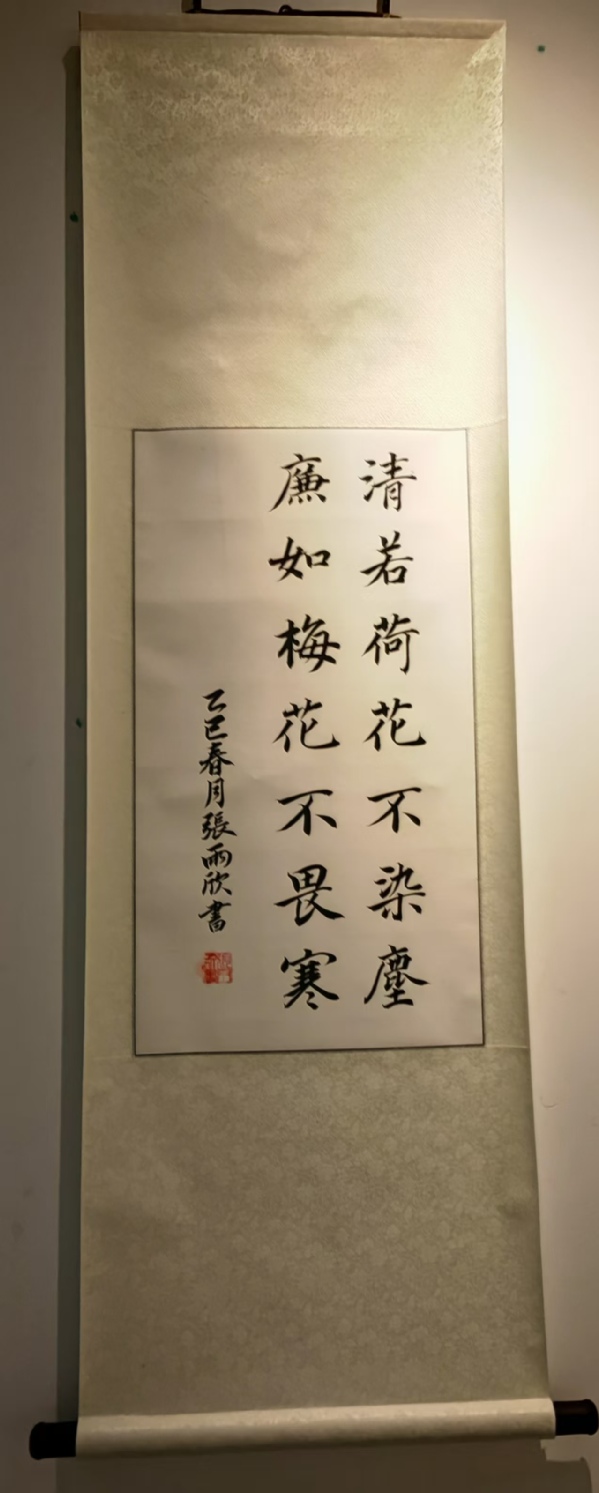 清若荷花不染塵
廉如梅花不畏寒
乙巳春月張雨欣書